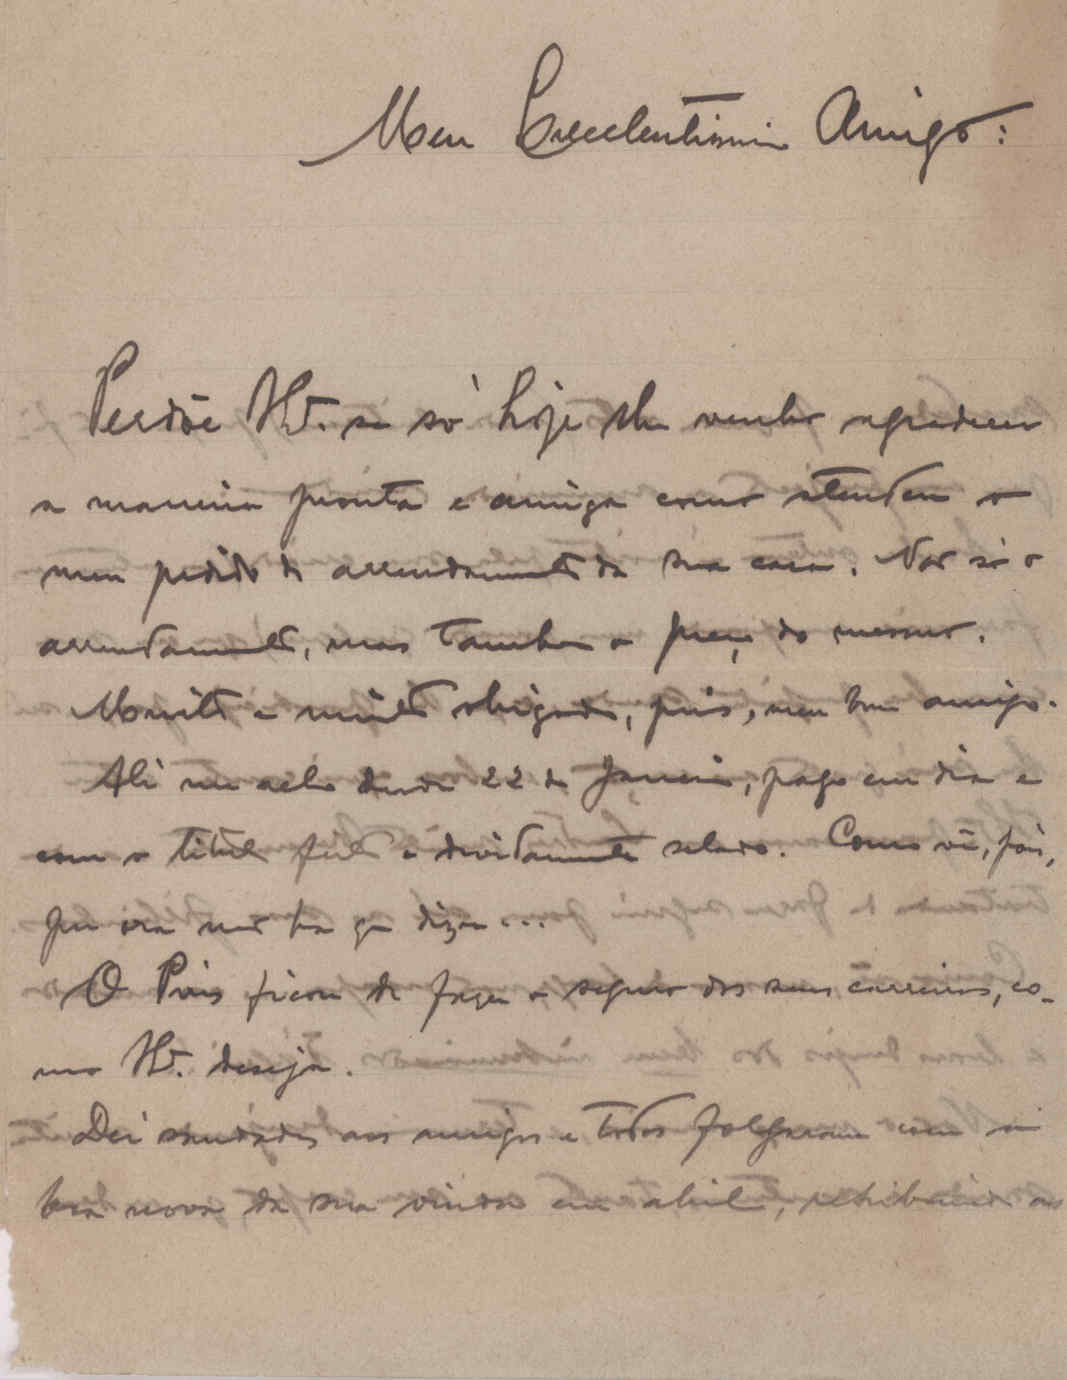 Meu Excelentissimo Amigo:
Perdôe V. se só hoje lhe venho agradecer
a maneira pronta e amiga como atendeu o
meu pedido de arrendamento da sua casa. Não só o
arrendamento, mas tambem o preço do mesmo.
Muito e muito obrigado, pois, meu bom amigo.
Ali me acho desde 22 de Janeiro, pago em dia e
com o titulo feito e devidamente selado. Como vê, pois,
que ora não ha que dizer...
O Pais ficou de fazer o seguro dos seus carreiros, co-
mo V. deseja.
Dei saudades aos amigos e todos folgaram com a
boa nova da sua vinda em abril, retribuindo as